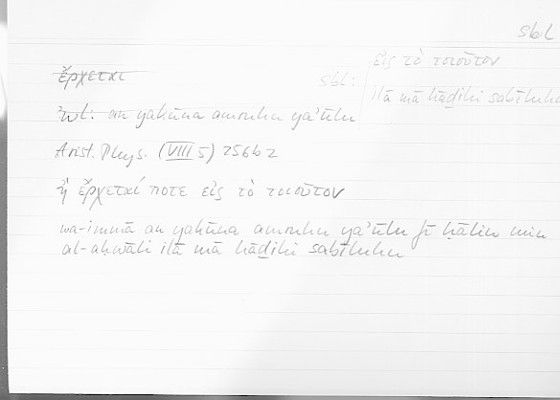 sbl
εἰς τὸ τοιοῦτον
sbl:
ilā mā hāḏihi sabīluhu
ἔρχεται
ʾwl: an yakūna amruhu yaʾūlu
Arist. Phys. (VIII 5) 256b2
ἢ ἔρχεταί ποτε εἰς τὸ τοιοῦτον
wa-immā an yakūna amruhu yaʾūlu fī ḥālin min
al-aḥwāli ilā mā hāḏihi sabīluhu